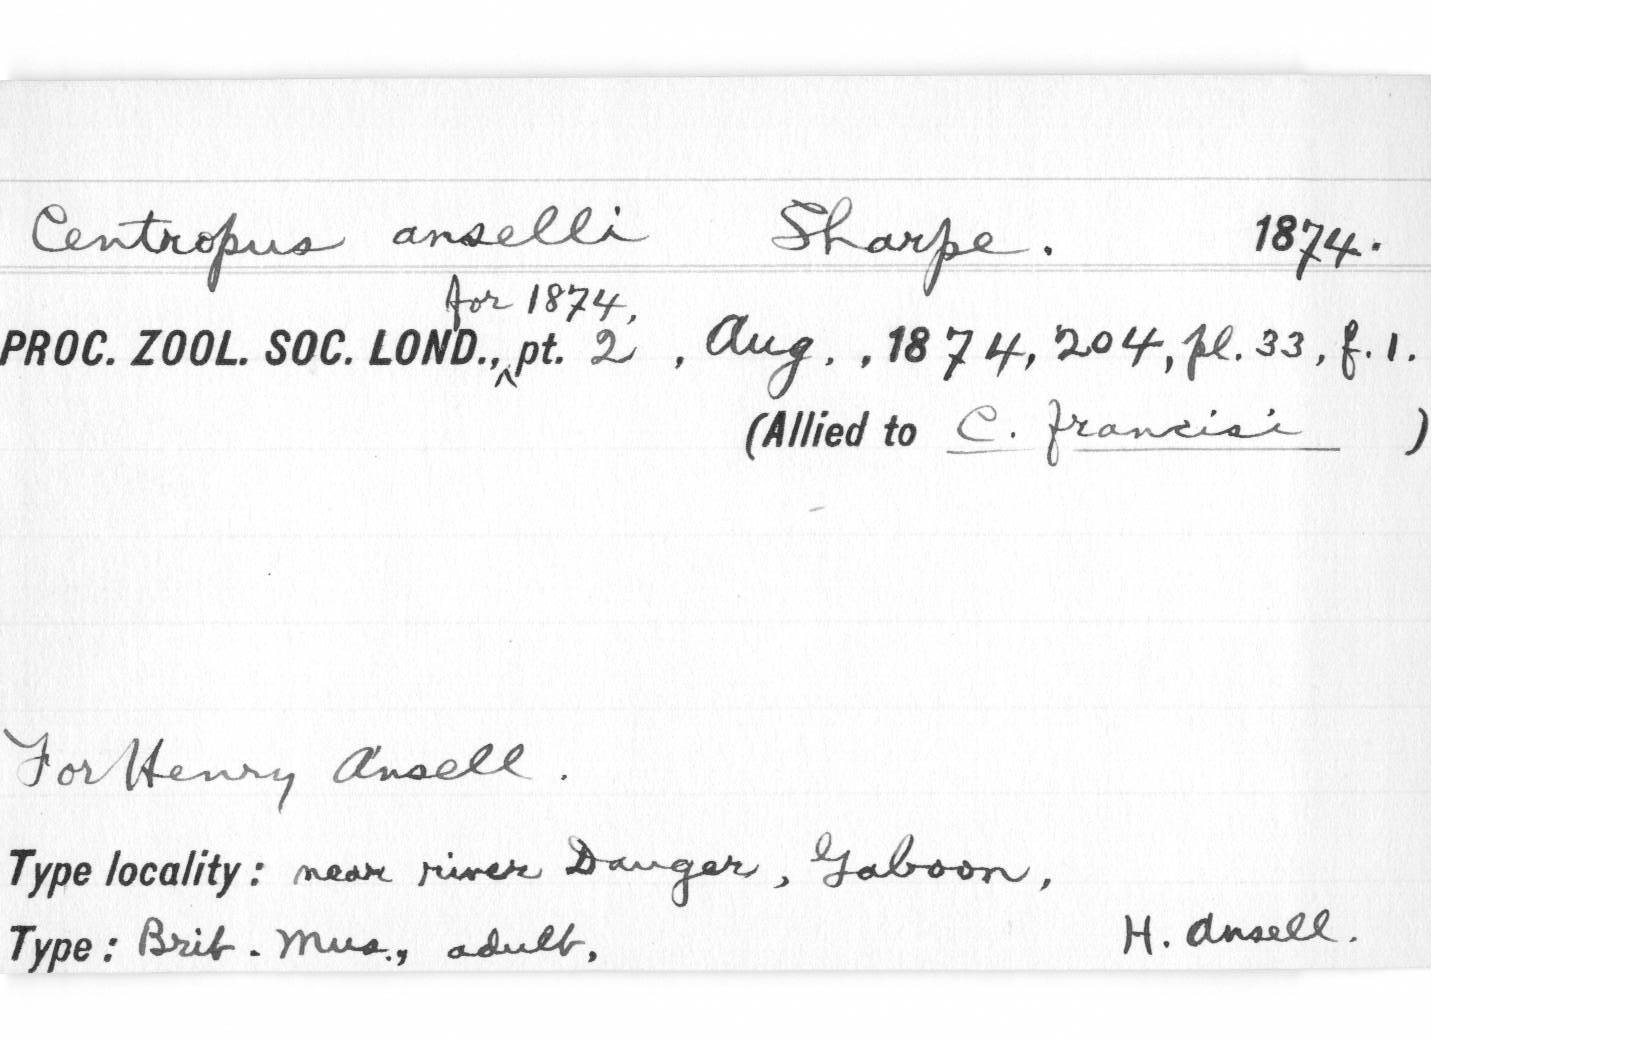 Centropus anselli Sharpe. 1874.
for 1874,
PROC. ZOOL. SOC. LOND., ^ pt. 2, Aug., 1874, 204, pl. 33, f. 1.
(Allied to C. francisi )
For Henry Ansell.
Type locality: near river Danger, Gaboon,
Type: Brit. Mus., adult, H. Ansell.